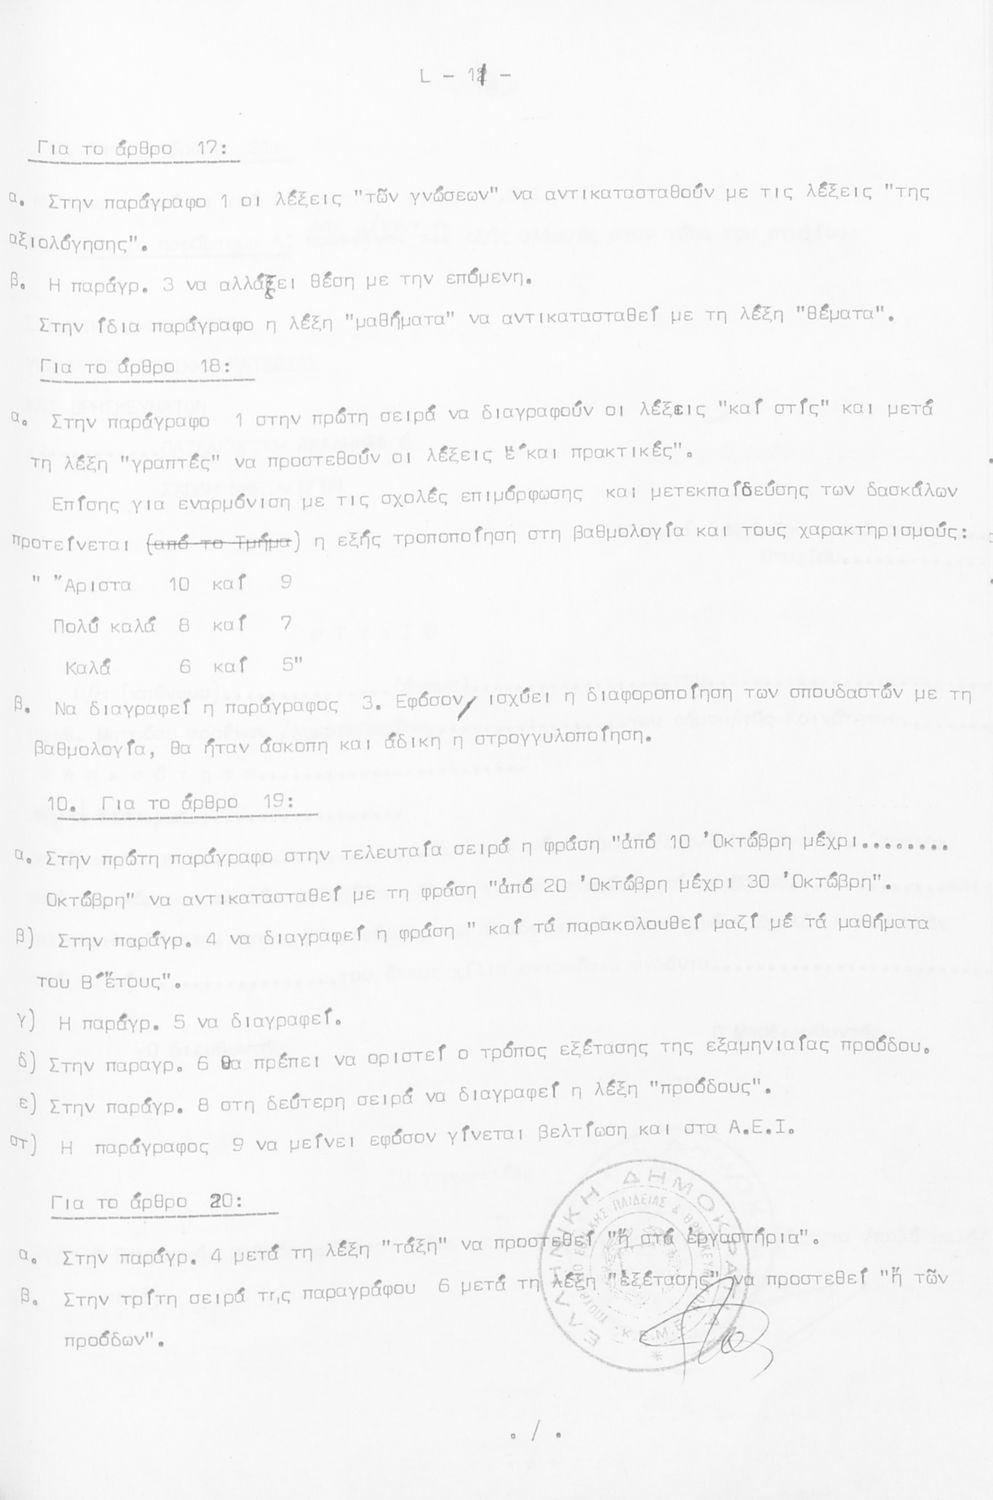 L - 11 -
Για το άρθρο 17:
α. Στην παράγραφο 1 οι λέξεις "τῶν γνώσεων" να αντικατασταθούν με τις λέξεις "της
αξιολόγησης".
β. Η παράγρ. 3 να αλλάξει θέση με την επόμενη.
Στην ίδια παράγραφο η λέξη "μαθήματα" να αντικατασταθεί με τη λέξη "θέματα".
Για το άρθρο 18:
α. Στην παράγραφο 1 στην πρώτη σειρά να διαγραφούν οι λέξεις "καί στίς" και μετά
τη λέξη "γραπτές" να προστεθούν οι λέξεις "και πρακτικές".
Επίσης για εναρμόνιση με τις σχολές επιμόρφωσης και μετεκπαίδευσης των δασκάλων
προτείνεται (από το Τμήμα) η εξής τροποποίηση στη βαθμολογία και τους χαρακτηρισμούς:
" Ἄριστα 10 καί 9
Πολύ καλά 8 καί 7
Καλά 6 καί 5"
β. Να διαγραφεί η παράγραφος 3. Εφόσον, ισχύει η διαφοροποίηση των σπουδαστών με τη
βαθμολογία, θα ήταν άσκοπη και άδικη η στρογγυλοποίηση.
10. Για το άρθρο 19:
α. Στην πρώτη παράγραφο στην τελευταία σειρά η φράση "ἀπό 10 Ὀκτώβρη μέχρι........
Οκτώβρη" να αντικατασταθεί με τη φράση "ἀπό 20 Ὀκτώβρη μέχρι 30 Ὀκτώβρη".
β) Στην παράγρ. 4 να διαγραφεί η φράση " καί τά παρακολουθεί μαζί μέ τά μαθήματα
του Β΄ἔτους".
γ) Η παράγρ. 5 να διαγραφεί.
δ) Στην παραγρ. 6 θα πρέπει να οριστεί ο τρόπος εξέτασης της εξαμηνιαίας προόδου.
ε) Στην παράγρ. 8 στη δεύτερη σειρά να διαγραφεί η λέξη "προόδους".
στ) Η παράγραφος 9 να μείνει εφόσον γίνεται βελτίωση και στα Α.Ε.Ι.
Για το άρθρο 20:
α. Στην παράγρ. 4 μετά τη λέξη "τάξη" να προστεθεί "ἤ στά ἐργαστήρια".
β. Στην τρίτη σειρά της παραγράφου 6 μετά τη λέξη "ἐξέτασης" να προστεθεί "ἤ τῶν
προόδων".
ΕΛΛΗΝΙΚΗ ΔΗΜΟΚΡΑΤΙΑ
Κ.Ε.Μ.Ε.
. / .